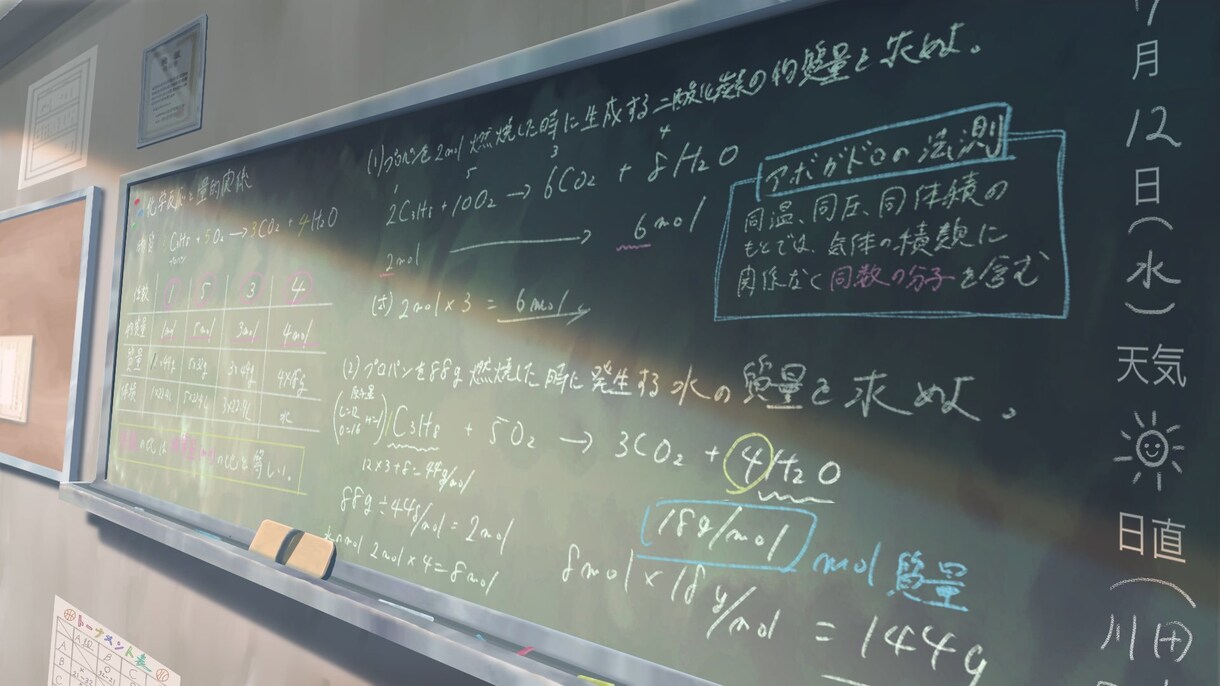 化学反応と量的関係
C3H8 + 5O2 → 3CO2 + 4H2O
係数 1 5 3 4
物質量 1mol 5mol 3mol 4mol
質量 1×44g 5×32g 3×44g 4×18g
体積 1×22.4L 5×22.4L 3×22.4L 水
の比と等しい。
(1) プロパンを2mol燃焼した時に生成する二酸化炭素の物質量を求めよ。
1 5 3 4
2C3H8 + 10O2 → 6CO2 + 8H2O
2mol → 6mol
2mol × 3 = 6mol
アボガドロの法則
同温、同圧、同体積の
もとでは、気体の種類に
関係なく同数の分子を含む
(2) プロパンを88g燃焼した時に発生する水の質量を求めよ。
原子量
C=12 H=1
O=16
C3H8 + 5O2 → 3CO2 + 4H2O
12×3+8=44g/mol
88g÷44g/mol=2mol
2mol×4=8mol
18g/mol mol質量
8mol×18g/mol
=144g
7月12日(水)
天気
日直(
川田
トーナメント表